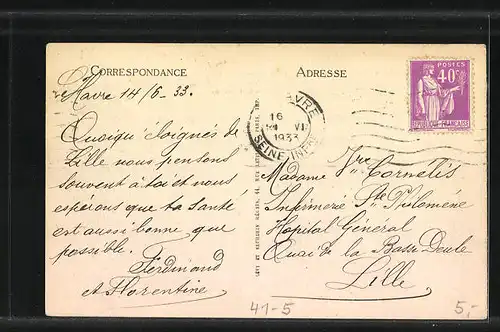 CORRESPONDANCE
Havre 14/6-33.
Quoiqu'éloignés de
Lille nous pensons
souvent à toi et nous
espérons que ta santé
est aussi bonne que
possible.
Ferdinand
et Florentine
ADRESSE
POSTES
40c
REPUBLIQUE FRANÇAISE
HAVRE
16
VI
1933
SEINE INFRE
Madame Vve Cornélis
Infirmerie Ste Philomène
Hôpital Général
Quai de la Basse Deule
Lille
41-5
5,-